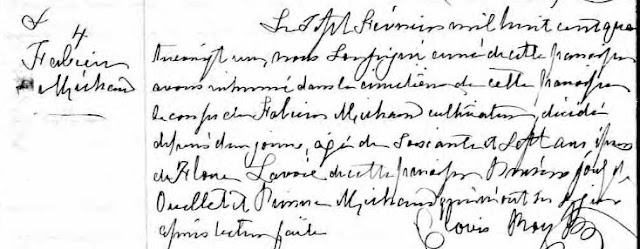 S 4
Fabien
Michaud
Le sept Février mil huit cent quatre
vingt un, nous soussigné curé de cette paroisse
avons inhumé dans le cimetière de cette paroisse
le corps de Fabien Michaud cultivateur, décédé
depuis deux jours, agé de soixante et sept ans, époux
de Flone Lavoie de cette paroisse. Présens Joseph
Ouellet et Michaud qui n'ont su signer
après lecture faite
Clovis Roy Ptre